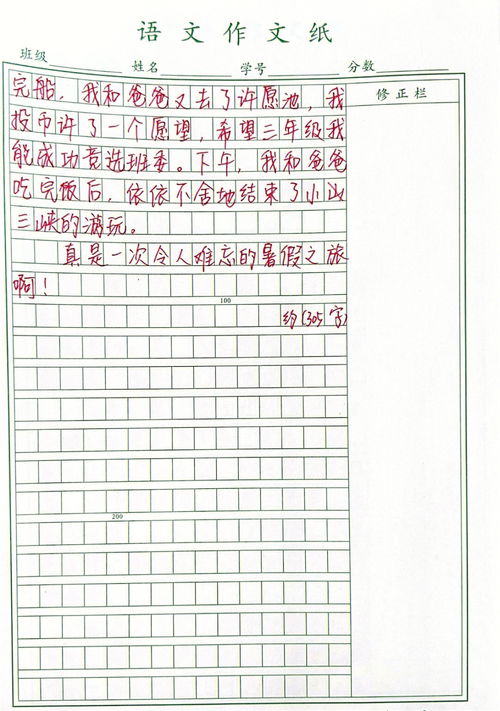 语文作文纸
班级 姓名 学号 分数
修正栏
完船，我和爸爸又去了许愿池，我
投币许了一个愿望，希望三年级我
能成功竞选班委。下午，我和爸爸
吃完饭后，依依不舍地结束了小山
三峡的游玩。
真是一次令人难忘的暑假之旅
啊！
100
约(305字)
200